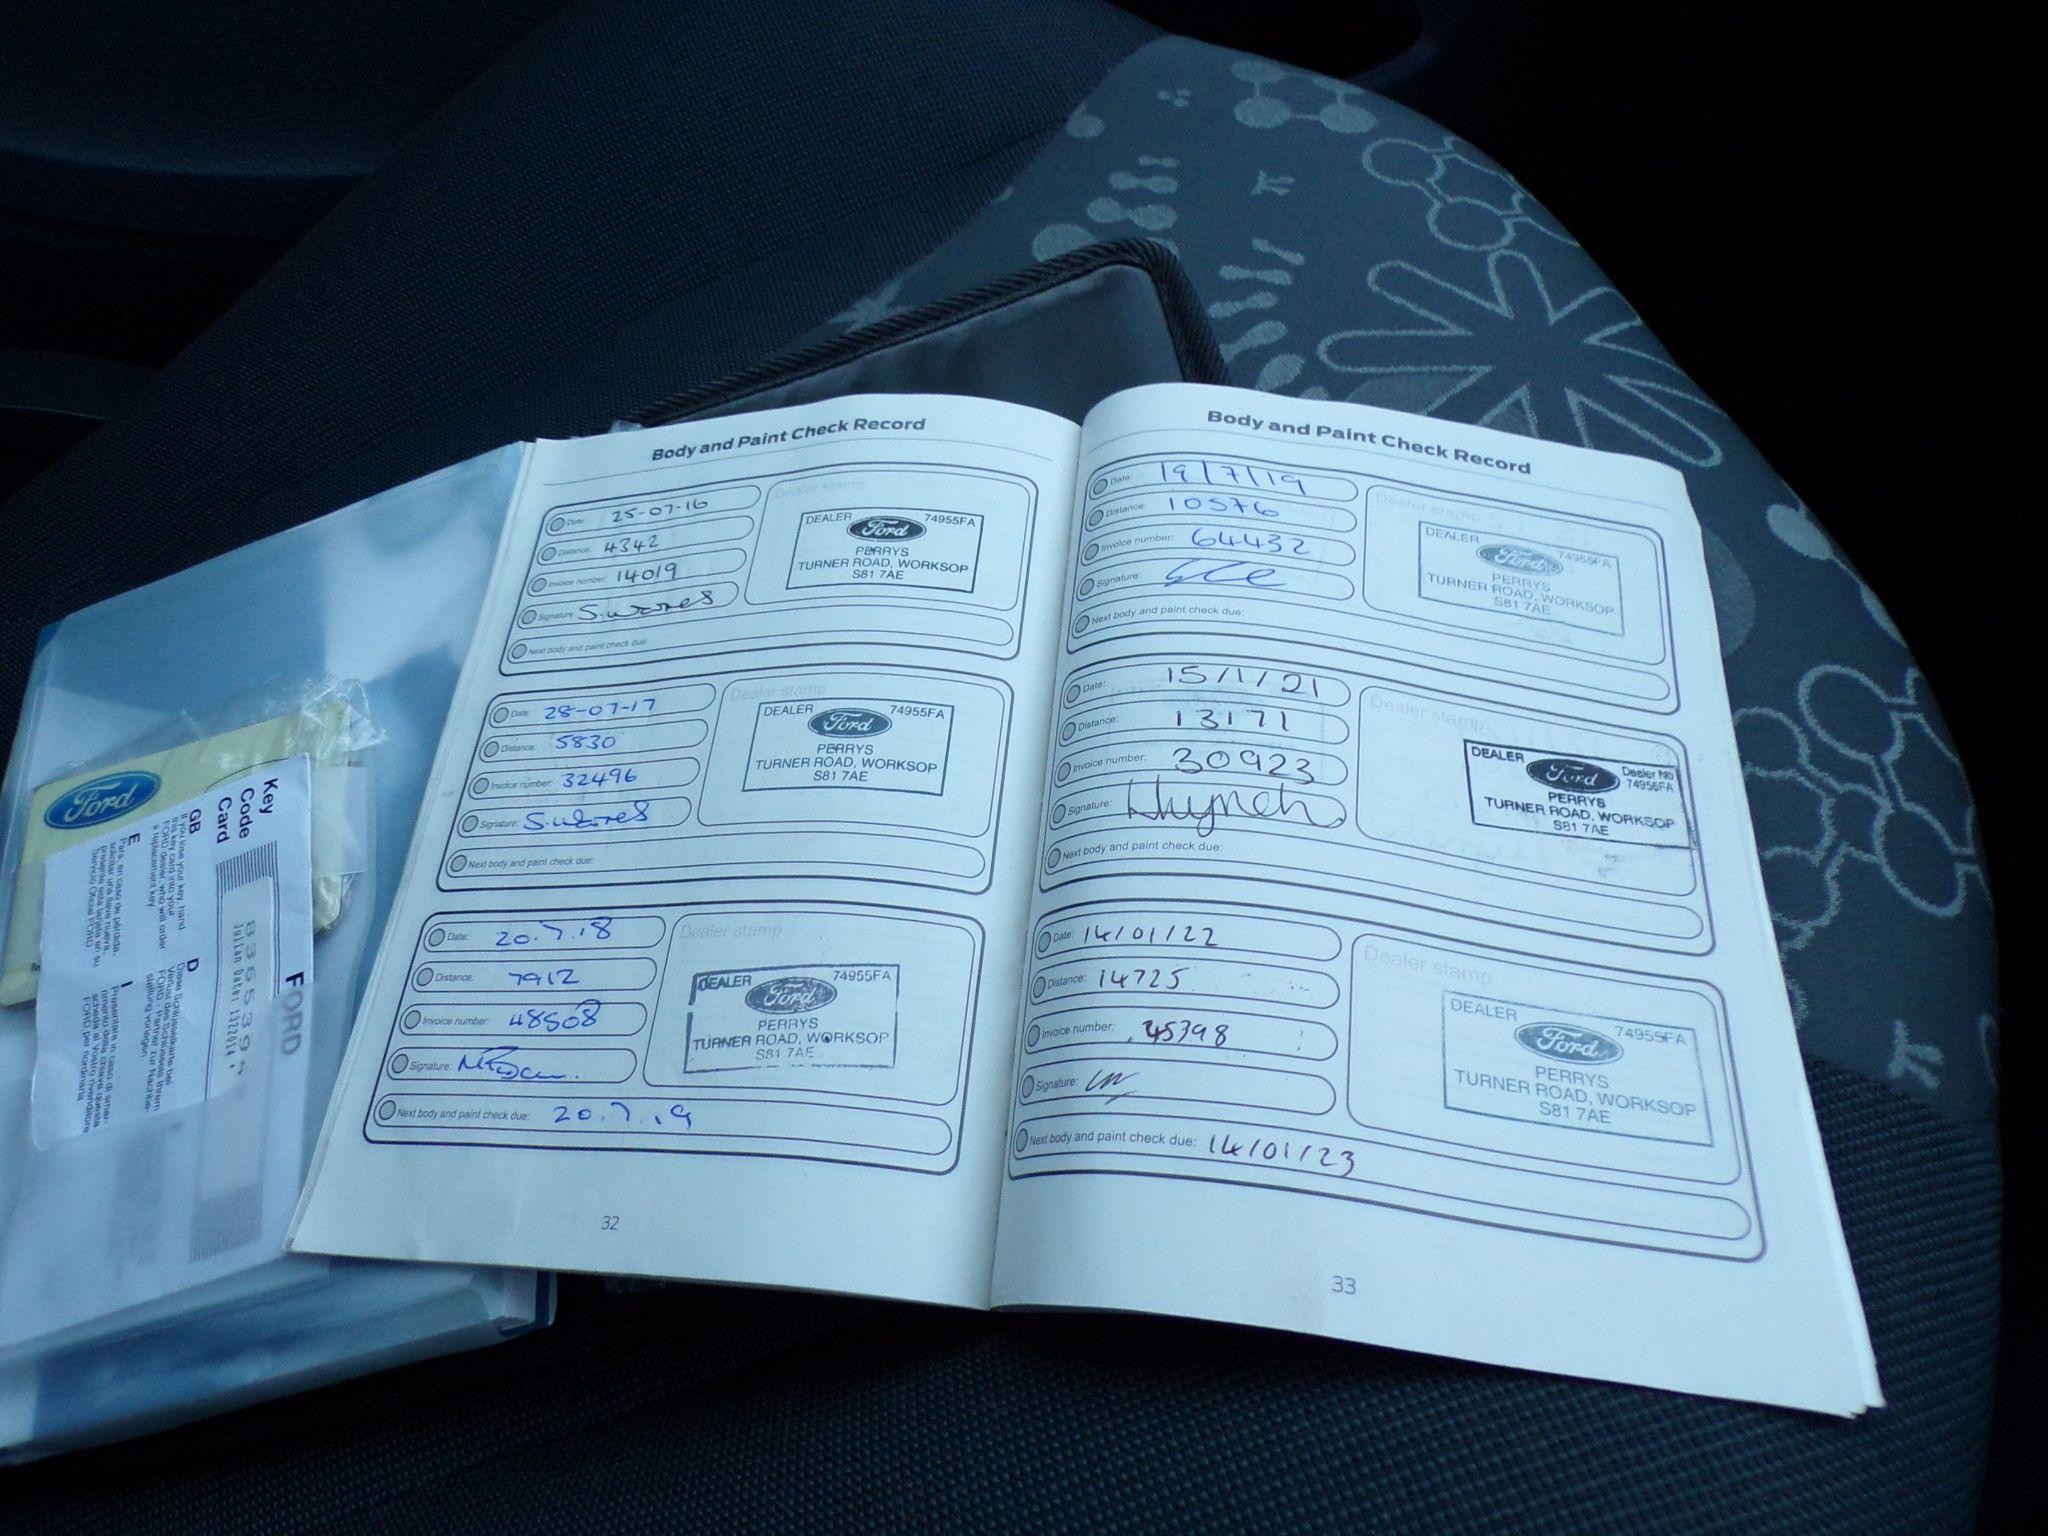 Body and Paint Check Record
Date: 25-07-16
Distance: 4342
Invoice number: 14019
Signature:
Next body and paint check due:
Dealer stamp
DEALER Ford 74955FA
PERRYS
TURNER ROAD, WORKSOP
S81 7AE
Date: 28-07-17
Distance: 5830
Invoice number: 32496
Signature:
Next body and paint check due:
Dealer stamp
DEALER Ford 74955FA
PERRYS
TURNER ROAD, WORKSOP
S81 7AE
Date: 20.7.18
Distance: 7912
Invoice number: 48508
Signature:
Next body and paint check due: 20.7.19
Dealer stamp
DEALER Ford 74955FA
PERRYS
TURNER ROAD, WORKSOP
S81 7AE
32
Body and Paint Check Record
Date: 19/7/19
Distance: 10576
Invoice number: 64432
Signature:
Next body and paint check due:
Dealer stamp
DEALER Ford 74955FA
PERRYS
TURNER ROAD, WORKSOP
S81 7AE
Date: 15/1/21
Distance: 13171
Invoice number: 30923
Signature:
Next body and paint check due:
Dealer stamp
DEALER Ford Dealer No
74955FA
PERRYS
TURNER ROAD, WORKSOP
S81 7AE
Date: 14/01/22
Distance: 14725
Invoice number: 45398
Signature:
Next body and paint check due: 14/01/23
Dealer stamp
DEALER Ford 74955FA
PERRYS
TURNER ROAD, WORKSOP
S81 7AE
33
Ford
Key
Code
Card
FORD
8365394
Julian Date: 132201
GB
If you lose your key, hand
this key card into your
FORD dealer, who will order
a replacement key
E
Para, en caso de pérdida,
solicitar una llave nueva,
presente esta tarjeta en su
Servicio Oficial FORD
D
Diese Schlüsselkarte bei
Verlust des Schlüssels Ihrem
FORD - Partner zur Nachbe-
stellung vorlegen
I
Presentare in caso di smar-
rimento della chiave questa
scheda al Vostro rivenditore
FORD per riordinarla